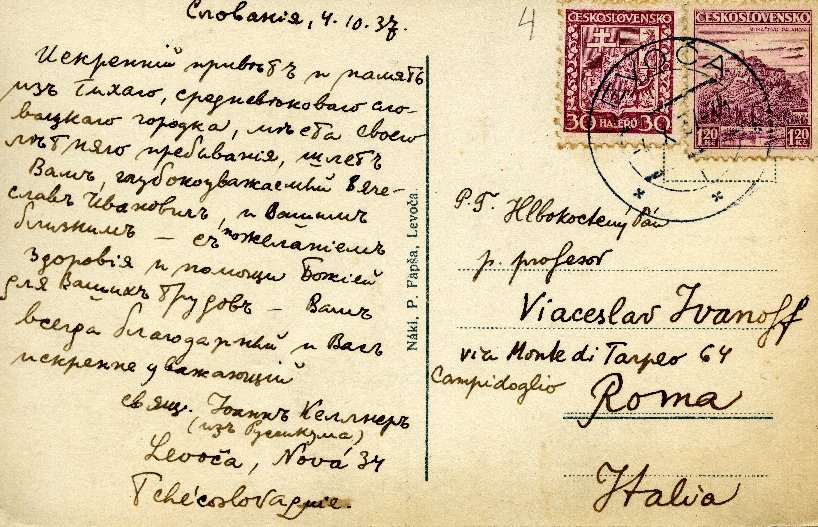 Словакія, 4.10.37.
Искренній привѣтъ и память
изъ тихаго, средневѣковаго сло-
вацкаго городка, мѣста своего
лѣтняго пребыванія, шлетъ
Вамъ, глубокоуважаемый Вяче-
славъ Ивановичъ, и Вашимъ
близкимъ – съ пожеланіемъ
здоровія и помощи Божіей
для Вашихъ трудовъ – Вамъ
всегда благодарный и Васъ
искренне уважающій
свящ. Іоаннъ Келлнеръ
(изъ Руссикума)
Levoča, Nová 34
Tchécoslovaquie.
Náki, P. Fápša, Levoča.
4
ČESKOSLOVENSKO
30 HALÉŘŮ 30
ČESKOSLOVENSKO
1.20 Kč 1.20
LEVOČA
P.T. Hlbokoctený Pán
p. profesor
Viaceslav Ivanoff
via Monte di Tarpeo 64
Campidoglio
Roma
Italia